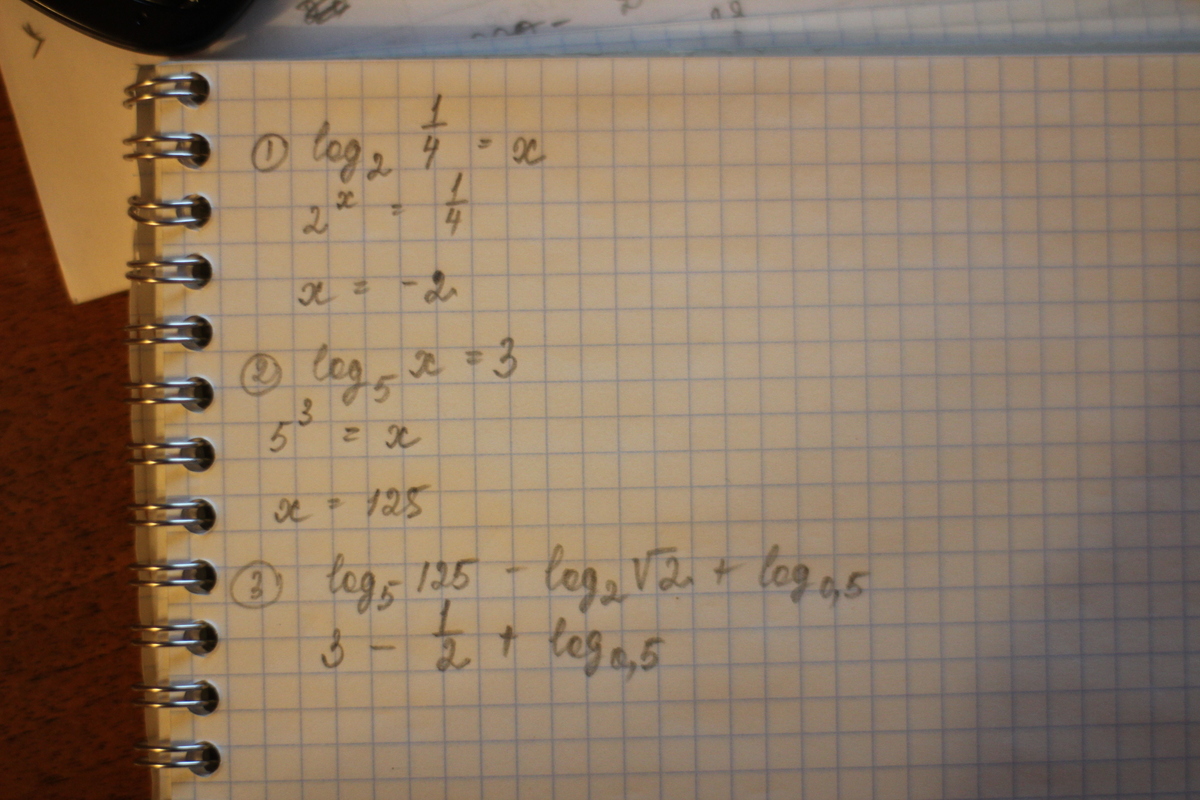 ① log₂ 1/4 = x
2ˣ = 1/4
x = -2
② log₅ x = 3
5³ = x
x = 125
③ log₅ 125 - log₂ √2 + log₀,₅
3 - 1/2 + log₀,₅